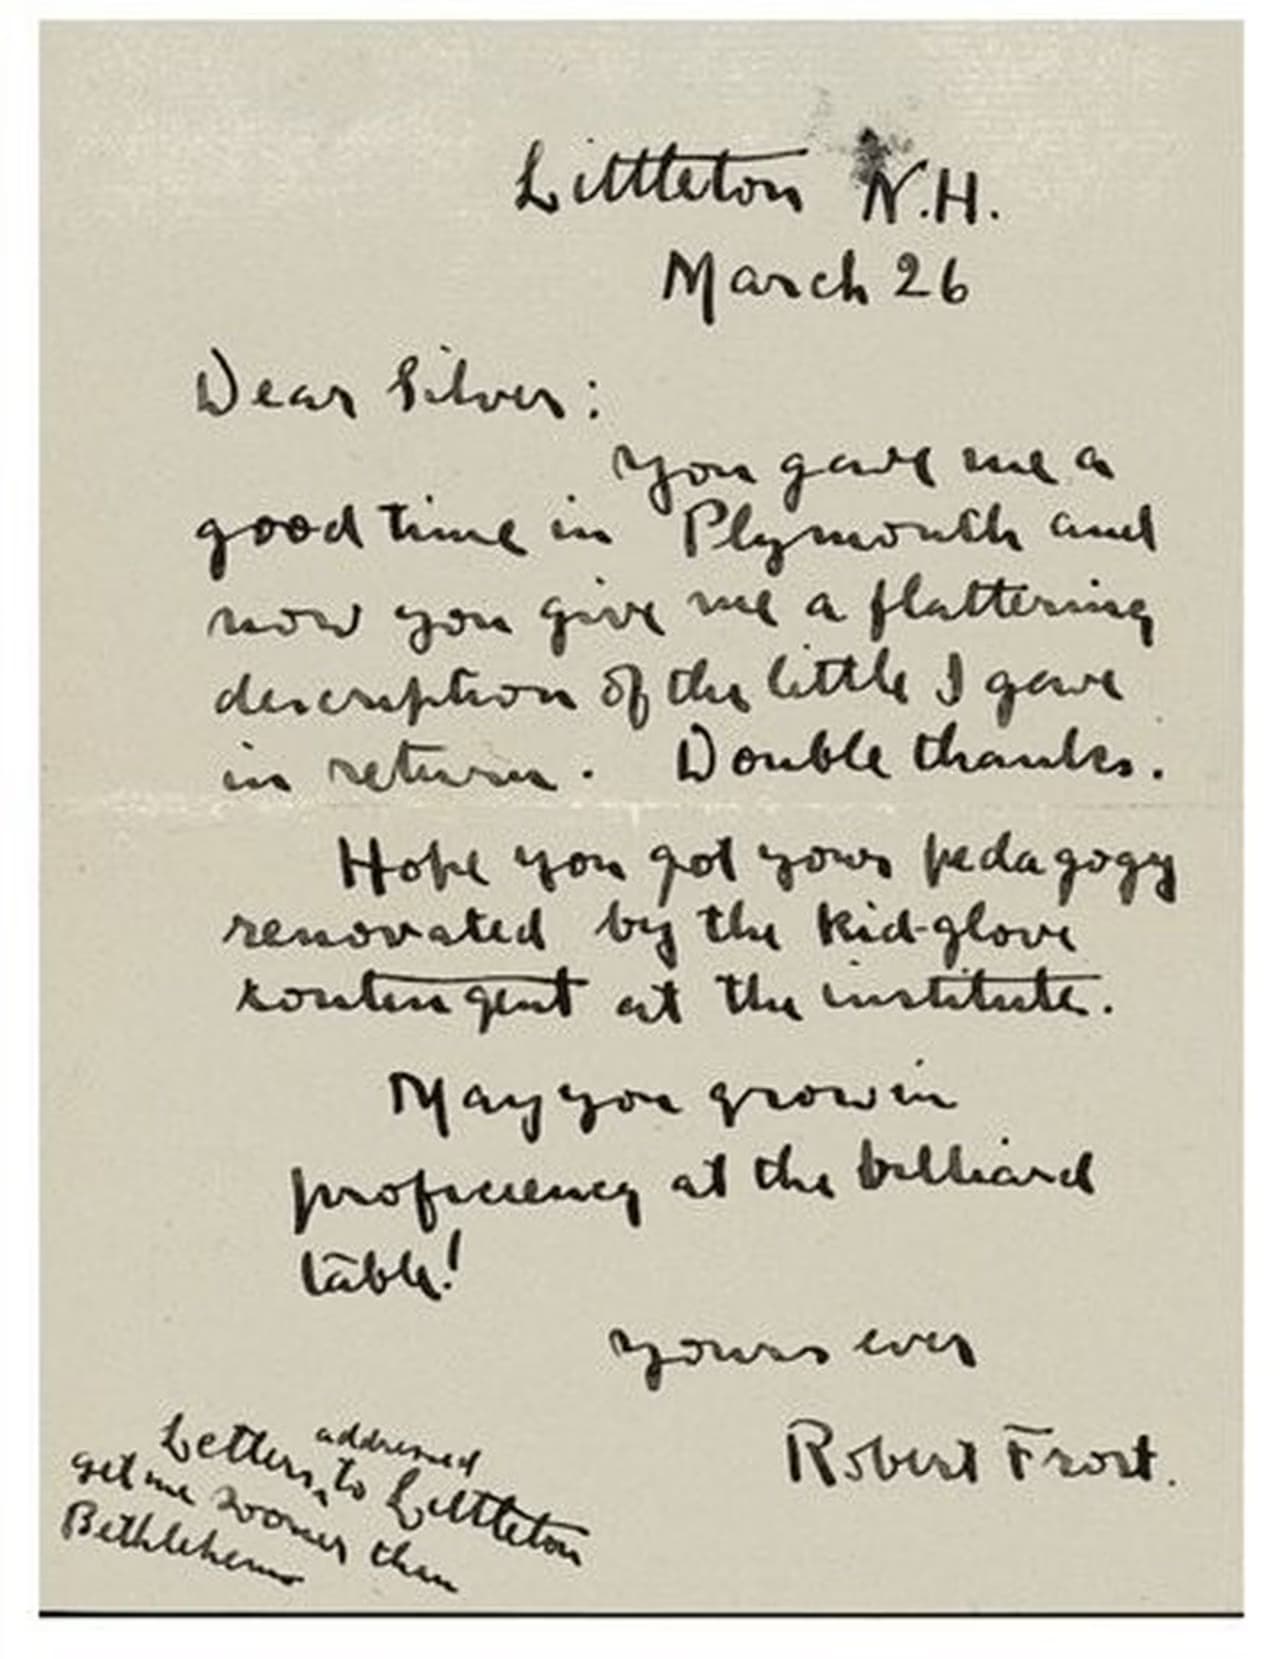 Littleton N.H.
March 26
Dear Silver:
You gave me a
good time in Plymouth and
now you give me a flattering
description of the little I gave
in return. Double thanks.
Hope you got your pedagogy
renovated by the kid-glove
contingent at the institute.
May you grow in
proficiency at the billiard
table!
Yours ever
Robert Frost.
addressed
Letters ‸ to Littleton
get me sooner than
Bethlehem